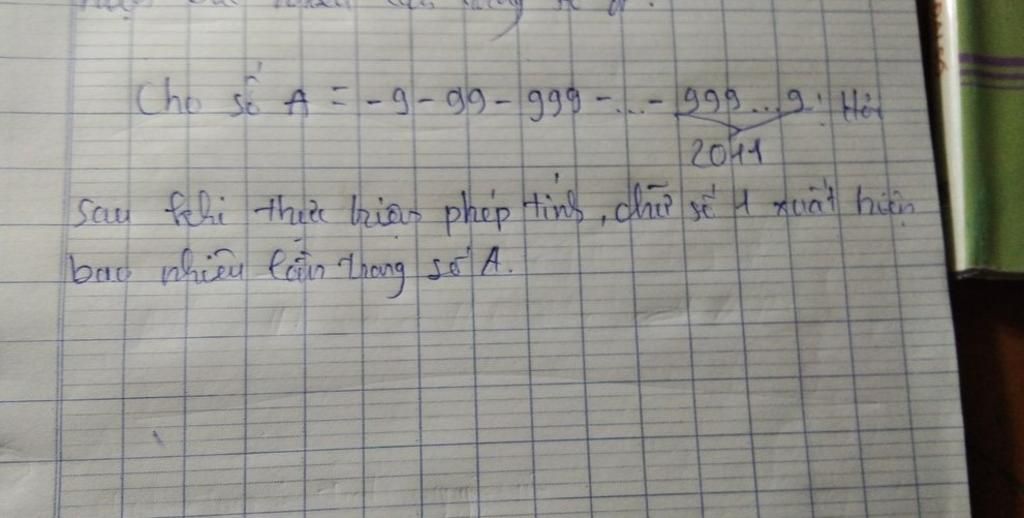 Cho số A = -9 - 99 - 999 - ... - 999...9. Hỏi
2011
sau khi thực hiện phép tính, chữ số 1 xuất hiện
bao nhiêu lần trong số A.